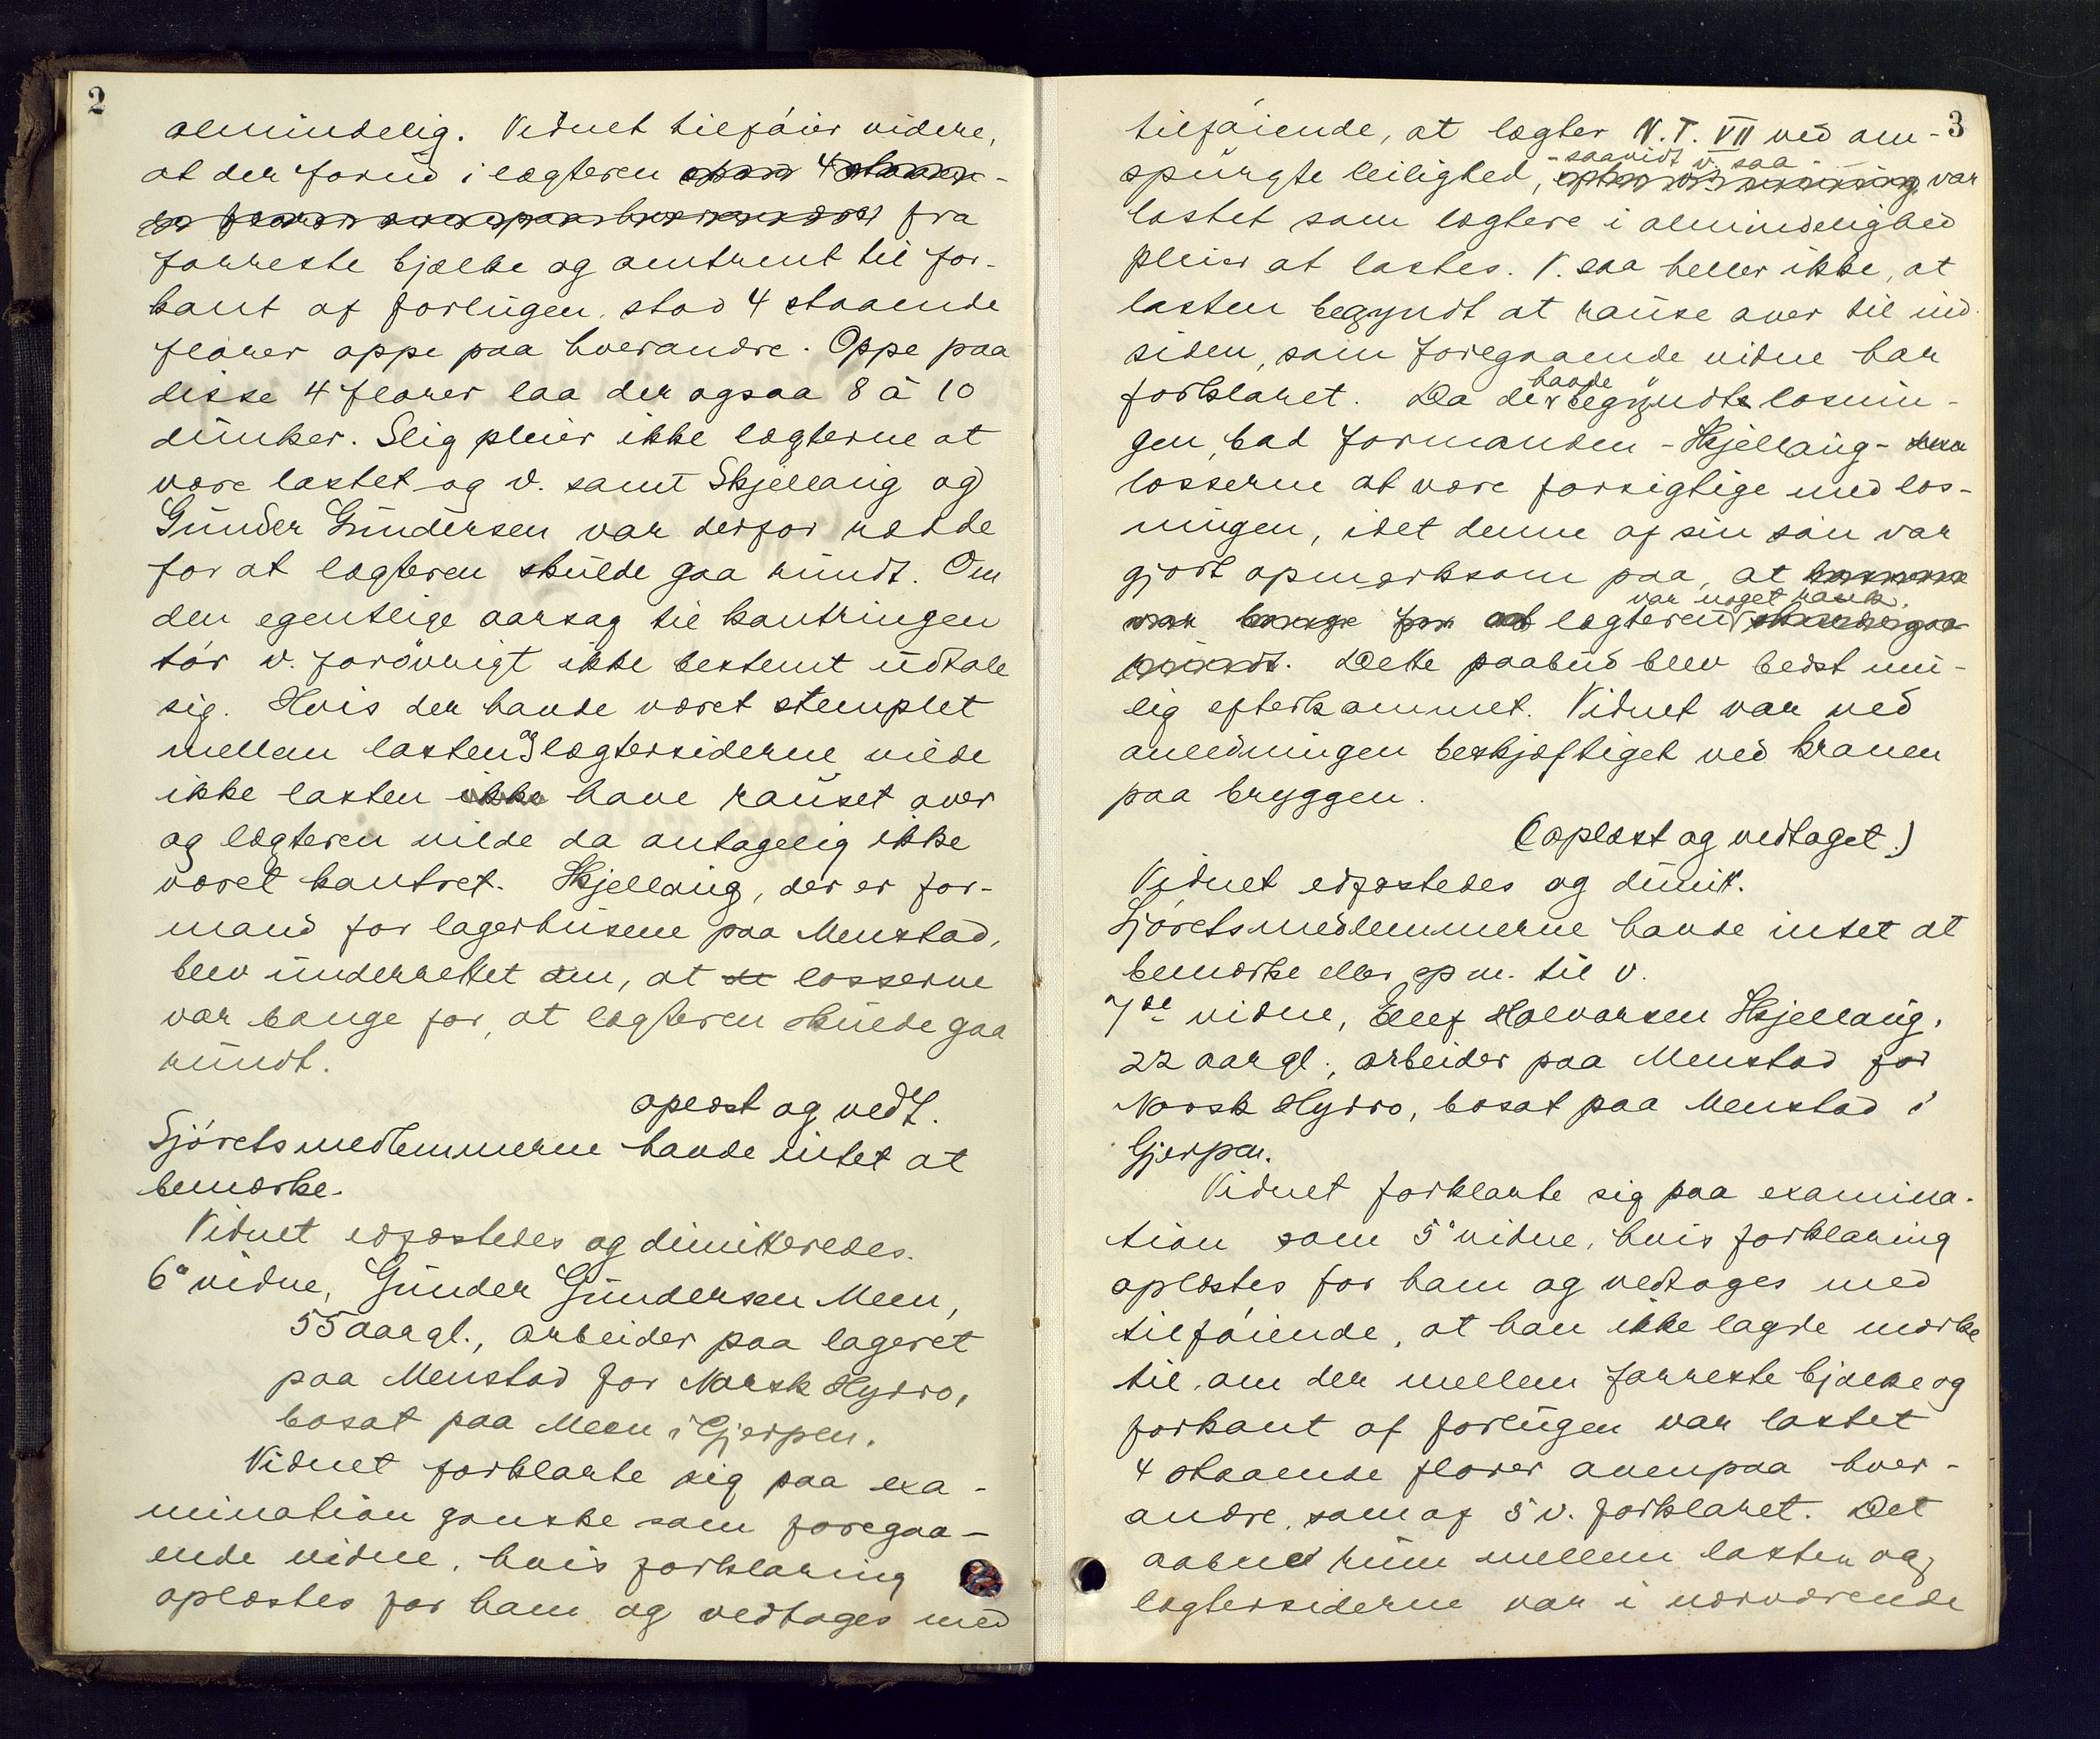 2
almindelig. Vidnet tilføier videre,
at der forud i lægteren stod 4 staaen-
de fra
forreste bjælke og omtrent til for-
kant af forlugen, stod 4 staaende
flører oppe paa hverandre. Oppe paa
disse 4 flører laa der ogsaa 8 à 10
dunker. Slig pleier ikke lægterne at
være lastet og v. samt Skjellaug og
Gunder Gundersen var derfor rædde
for at lægteren skulde gaa rundt. Om
den egentlige aarsag til kantringen
tør v. forøvrigt ikke bestemt udtale
sig. Hvis der havde været stemplet
mellem lasten og lægtersiderne vilde
ikke lasten ikke have rauset over
og lægteren vilde da antagelig ikke
været kantret. Skjellaug, der er for-
mand for lagerhusene paa Menstad,
blev underrettet om, at de losserne
var bange for, at lægteren skulde gaa
rundt.
oplæst og vedt.
Sjøretsmedlemmerne havde intet at
bemærke.
Vidnet edfæstedes og dimitteredes.
6te vidne, Gunder Gundersen Meen,
55 aar gl., arbeider paa lageret
paa Menstad for Norsk Hydro,
bosat paa Meen i Gjerpen.
Vidnet forklarte sig paa exa-
mination ganske som foregaa-
ende vidne, hvis forklaring
oplæstes for ham og vedtoges med
3
tilføiende, at lægter N.T. VII ved om-
- saavidt v. saa -
spurgte leilighed, var
lastet som lægtere i almindelighed
pleier at lastes. V. saa heller ikke, at
lasten begyndt at rause over til ind-
siden, som foregaaende vidne har
havde
forklaret. Da der begyndte losnin-
gen, bad formanden - Skjellaug -
losserne at være forsigtige med los-
ningen, idet denne af sin søn var
gjort opmerksom paa, at
var noget rank.
var bange for at lægteren skulde gaa
rundt. Dette paabud blev bedst mu-
lig efterkommet. Vidnet var ved
anledningen beskjæftiget ved kranen
paa bryggen.
(oplæst og vedtaget.)
Vidnet edfæstedes og dimit.
Sjøretsmedlemmerne havde intet at
bemærke eller spm. til v.
7de vidne, Ellef Halvorsen Skjellaug,
22 aar gl., arbeider paa Menstad for
Norsk Hydro, bosat paa Menstad i
Gjerpen.
Vidnet forklarte sig paa examina-
tion som 5te vidne, hvis forklaring
oplæstes for ham og vedtoges med
tilføiende, at han ikke lagde mærke
til, om der mellem forreste bjælke og
forkant af forlugen var lastet
4 staaende flører ovenpaa hver-
andre, som af 5 v. forklaret. Det
aabne rum mellem lasten og
lægtersiderne var i nærværende